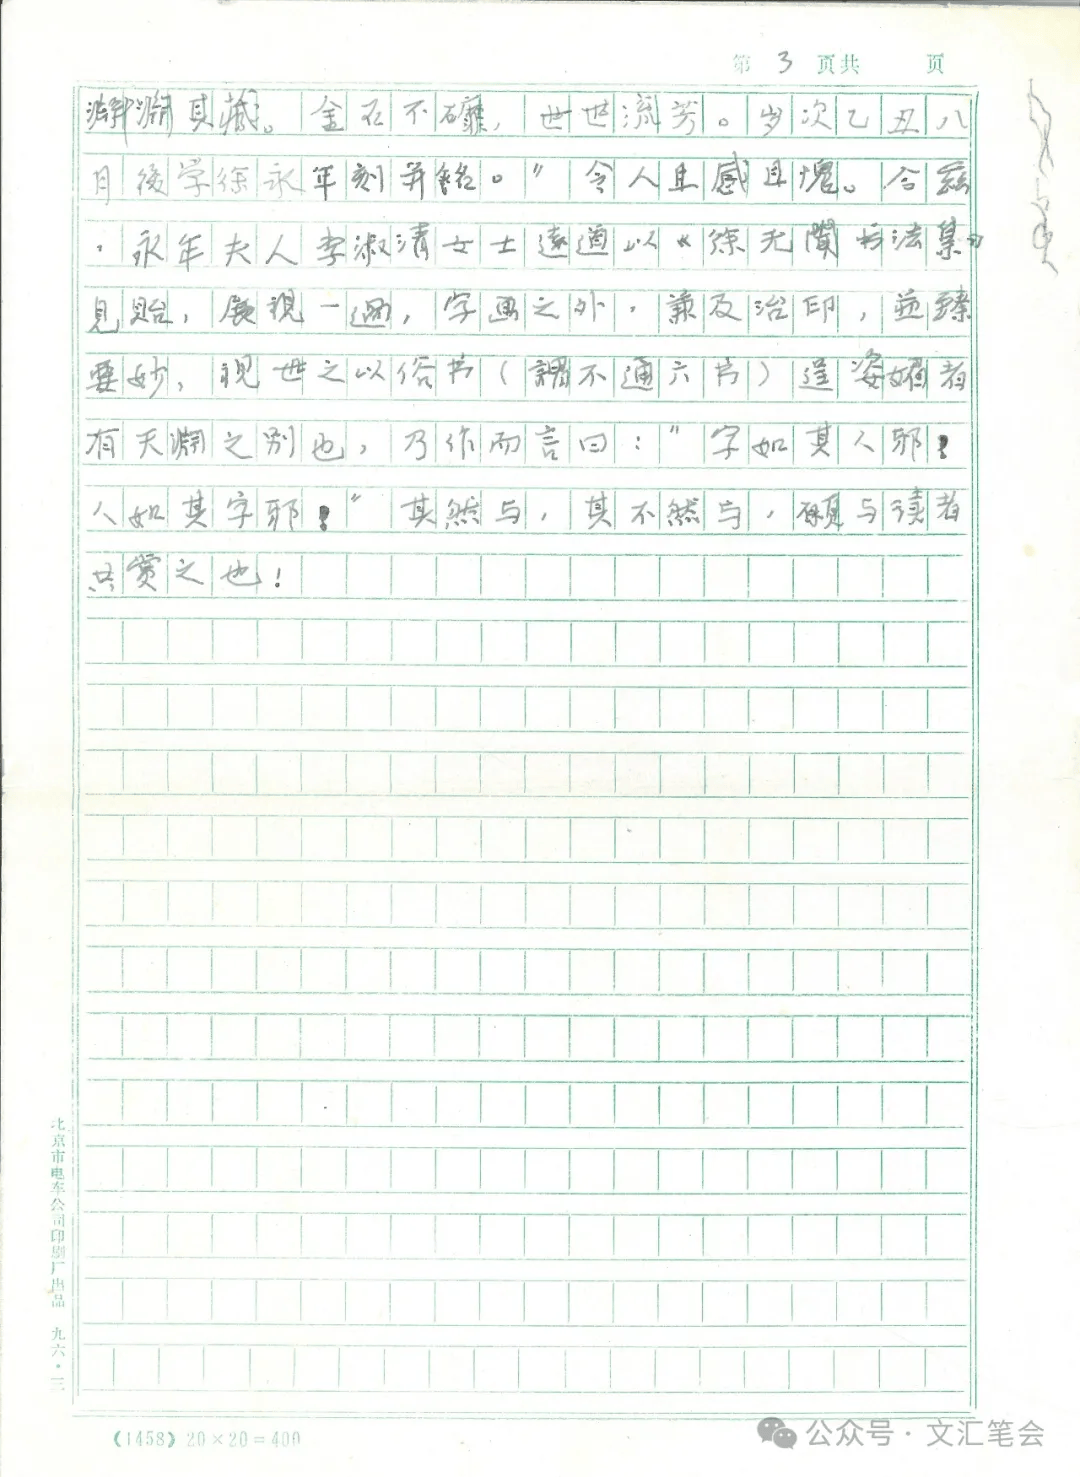 第 3 页共 页
渊其藏。金石不礲，世世流芳。岁次乙丑八
月後学徐永年刻并銘。”令人且感且愧。今茲
，永年夫人李淑清女士遠道以《徐无闻书法集》
見貽，展視一過，字画之外，兼及治印，並臻
要妙，視世之以俗书（謂不通六书）逞姿媚者
有天淵之別也，乃作而言曰：“字如其人邪？
人如其字邪？”其然与，其不然与，願与读者
共赏之也！
北京市电车公司印刷厂出品 九六·三
(1458) 20×20=400
公众号·文汇笔会